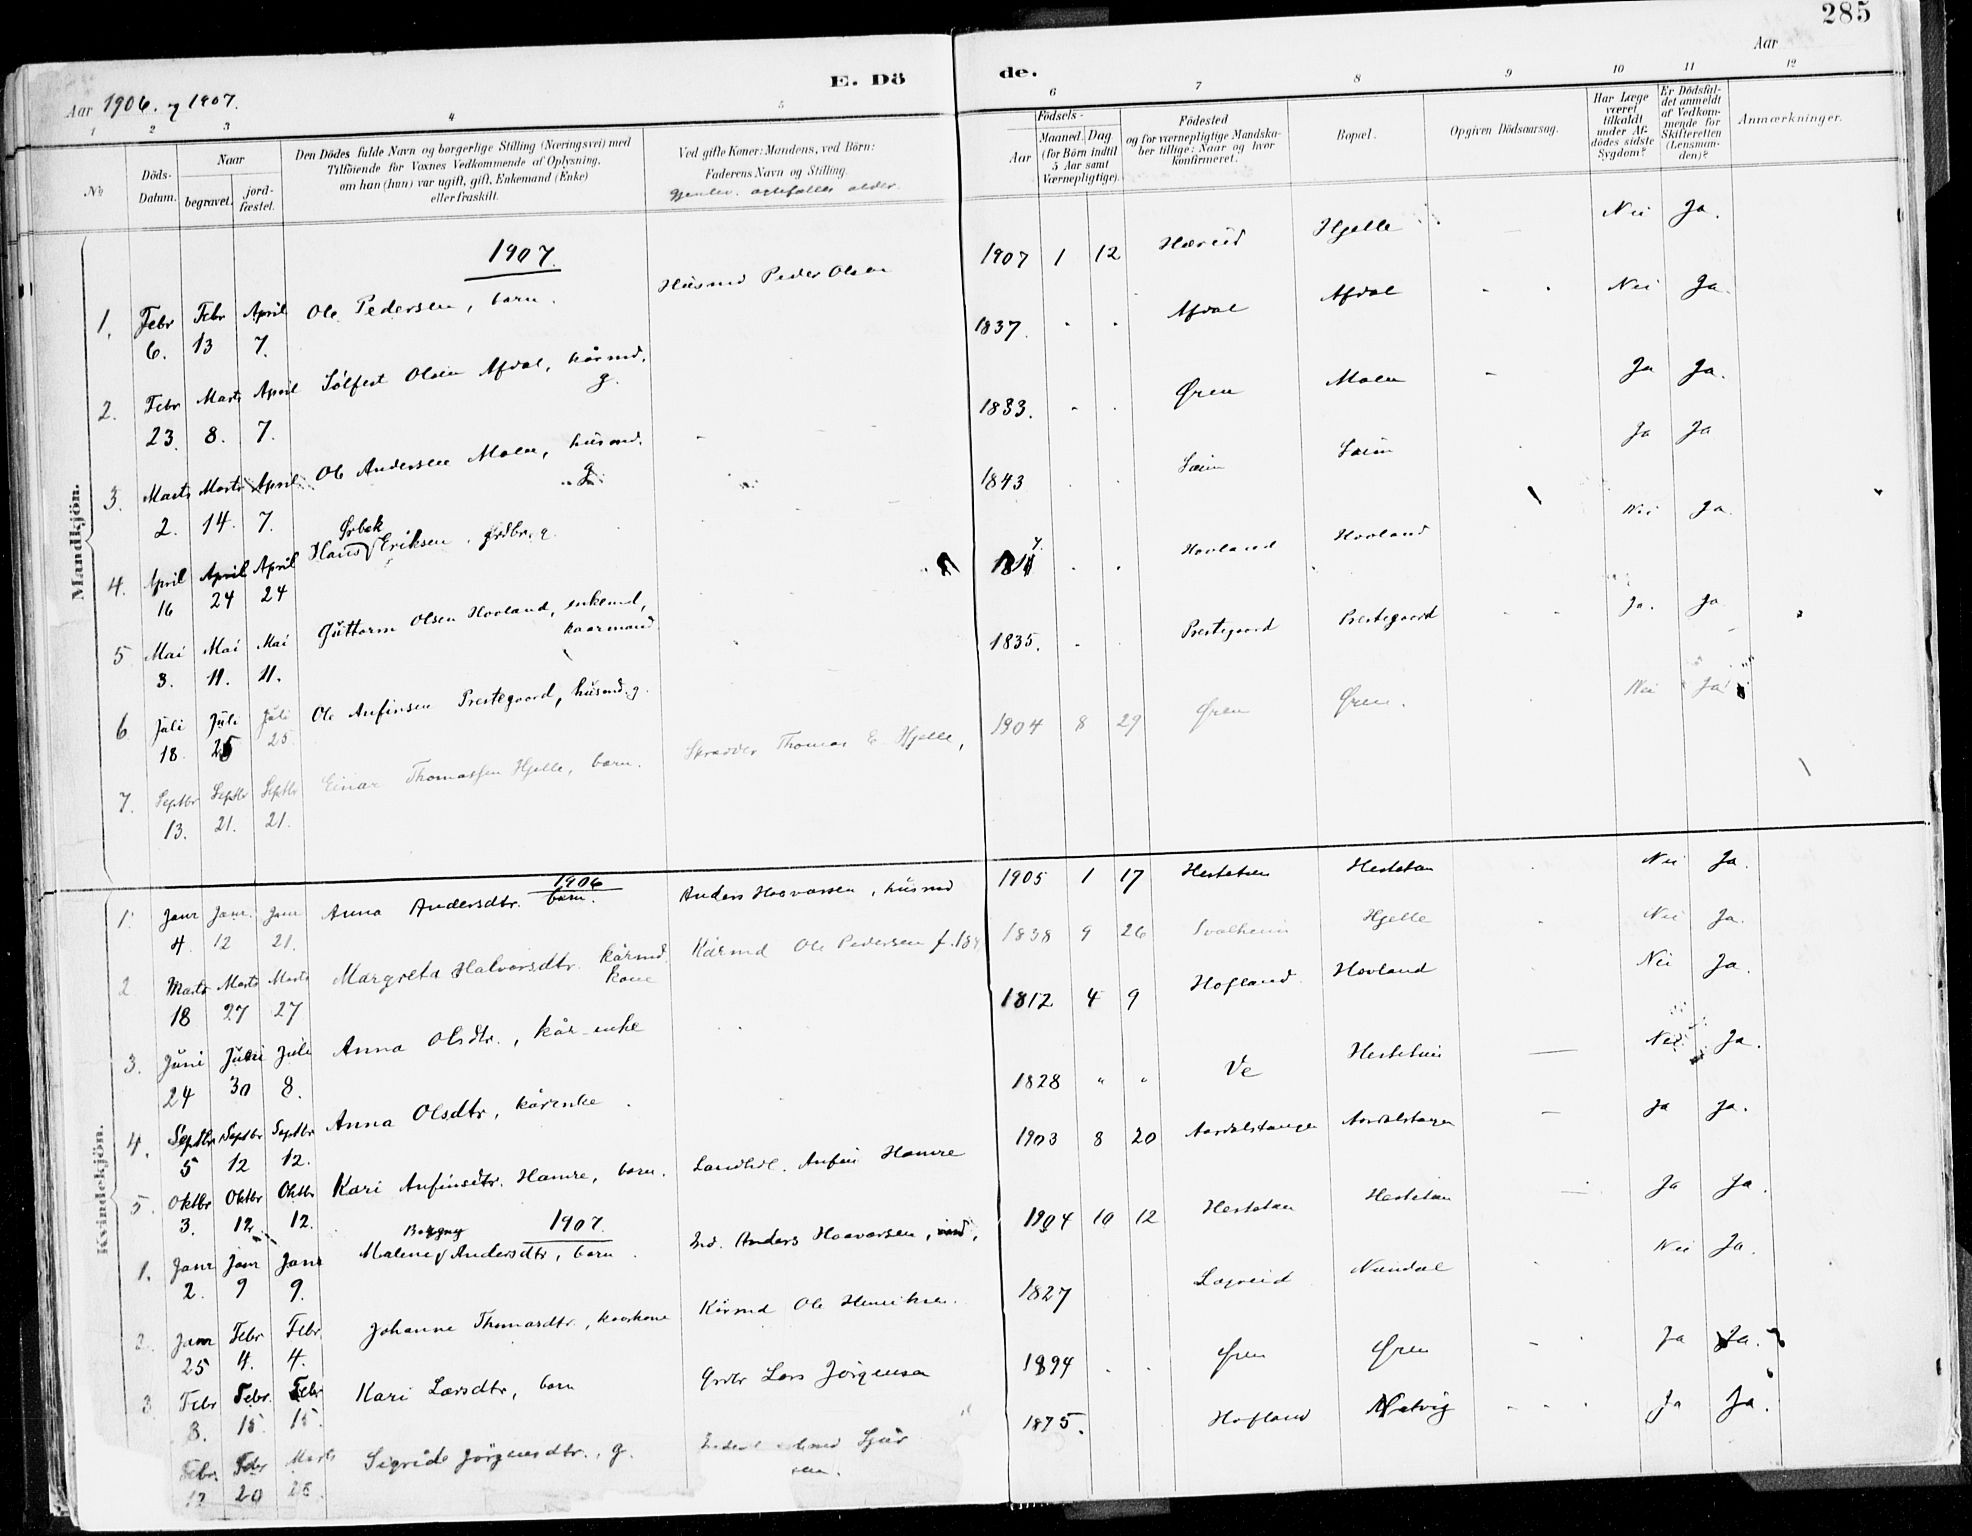 285
E. Dö de.
Aar 1906. og 1907.
Aar
1 2 3 4 5 6 7 8 9 10 11 12
No
Döds-Datum.
Naar
begravet.
jord-fæstet.
Den Dödes fulde Navn og borgerlige Stilling (Næringsvei) med
Tilföiende for Voxnes Vedkommende af Oplysning,
om han (hun) var ugift, gift, Enkemand (Enke)
eller fraskilt.
Ved gifte Koner: Mandens, ved Börn:
Faderens Navn og Stilling.
Födsels-
Aar
Maaned.
Dag.
(for Börn indtil
5 Aar samt
Værnepligtige).
Födested
og for værnepligtige Mandska-
ber tillige: Naar og hvor
konfirmeret.
Bopæl.
Opgiven Dödsaarsag.
Har Læge
været
tilkaldt
under Af-
dödes sidste
Sygdom?
Er Dödsfal-
det anmeldt
af Vedkom-
mende for
Skifteretten
(Lensman-
den)?
Anmærkninger.
Mandkjön.
1907.
1. Febr 6. Febr 13 April 7. Ole Pedersen, barn. Husmd Peder Olsen 1907 1 12 Hæreid Hjelle Nei Ja.
2. Febr 23. Marts 8. April 7. Sølfest Olsen Afdal, kårmd. g. 1837. Afdal Afdal Nei Ja.
3. Marts 2. Marts 14. April 7. Ole Andersen Moen, husmd. g. 1833. Øren Moen Ja Ja.
4. April 16 April 24 April 24 Hans Ørbek Eriksen, grdbr. g. 1843 Ja Ja
5 Mai 3. Mai 11. Mai 11. Guttorm Olsen Hovland, enkemd, kaarmand Hovland Hovland Nei Ja.
6 Juli 18. Juli 25 Juli 25. Ole Anfinsen Prestegaard, husmd. g. 1835. Prestegaard Prestegaard Ja. Ja
7. Septbr 13. Septbr 21. Septbr 21. Einar Thomassen Hjelle, barn. Skrædder Thomas E. Hjelle, 1904 8 29 Øren Øren. Nei Ja
Kvindekjön.
1906
1. Janr 4. Janr. 12 Janr 21. Anna Andersdtr. barn. Anders Haavarsen, husmd 1905 1 17 Hestetun Hestetun Nei Ja.
2 Marts 18 Marts 27 Marts 27 Margreta Halvorsdtr. kårmd. kone Kårmd Ole Pedersen f. 18 1838 9 26 Svalheim Hjelle Nei Ja.
3. Juni 24 Juni 30 Juli 8. Anna Olsdtr., kår-enke 1812 4 9 Hofland Hovland Nei Ja.
4. Septbr 5 Septbr 12 Septbr 12. Anna Olsdtr, kårenke 1828 " " Ve Hestetun Nei Ja.
5. Oktbr 3. Oktbr 12. Oktbr 12. Kari Anfinsdtr. Hamre, barn. Landhdl. Anfin Hamre 1903 8 20 Aardalstangen Aardalstangen Ja Ja.
1907.
1. Janr 2. Janr 9 Janr 9. Malene Borgny Andersdtr, barn. Anders Haavarsen, 1904 10 12 Hestetun Hestetun Ja Ja.
2. Janr 25 Febr 4. Febr 4. Johanne Thomasdtr., kaarkone Kårmd Ole Henriksen. 1827 Lægreid Nundal Nei Ja.
3 Febr 8. Febr. 15. Febr 15. Kari Larsdtr, barn Lars Jørgensen 1894 Øren Øren Ja Ja.
Febr. 12 Febr 20 Marts Sigrid Jørgensdtr., g. 1875. Hofland Natvig Ja Ja.